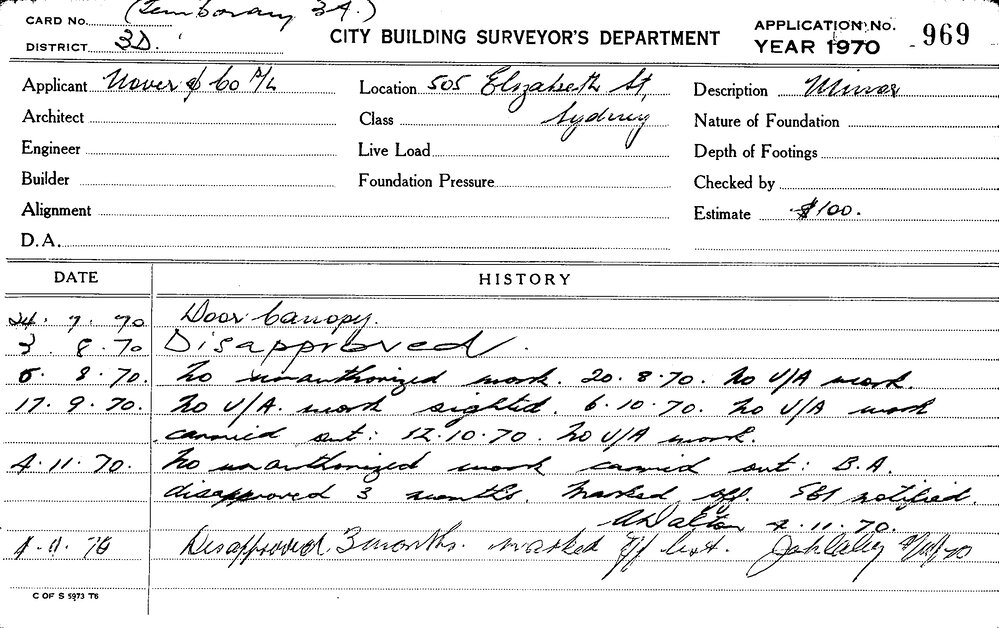 (Temporary 3A.)
CARD No.
DISTRICT 3D. CITY BUILDING SURVEYOR'S DEPARTMENT APPLICATION No. 969
YEAR 1970
Applicant & Co P/L Location 505 Elizabeth St, Description Minor
Architect Class Sydney Nature of Foundation
Engineer Live Load Depth of Footings
Builder Foundation Pressure Checked by
Alignment Estimate $100.
D.A.
DATE HISTORY
24. 7. 70 Door Canopy.
3 8.70 Disapproved.
5. 8.70. No unauthorized work. 20.8.70. No U/A work.
17.9.70. No U/A. work sighted. 6.10.70. No U/A work
carried out: 12.10.70. No U/A work.
4.11.70. No unauthorized work carried out: B.A.
disapproved 3 months. Marked off. SBI notified.
ADalton 4.11.70.
4.11.70 Disapproved. 3 months. marked off list.
C OF S 5973 T6